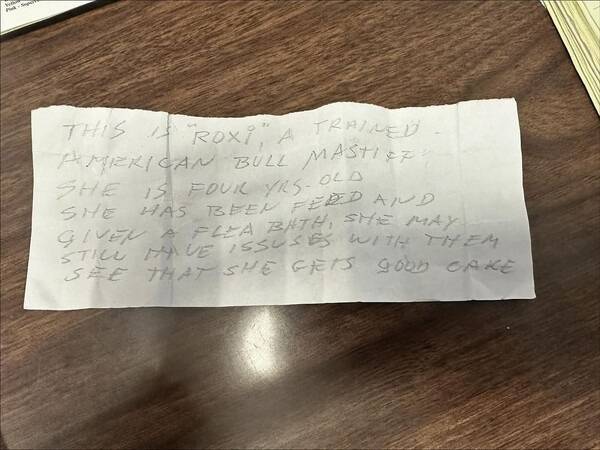 Pink - Supervi
THIS IS "ROXI", A TRAINED
AMERICAN BULL MASTIFF,
SHE IS FOUR YRS-OLD
SHE HAS BEEN FEEED AND
GIVEN A FLEA BATH, SHE MAY
STILL HAVE ISSUSES WITH THEM
SEE THAT SHE GETS GOOD CARE